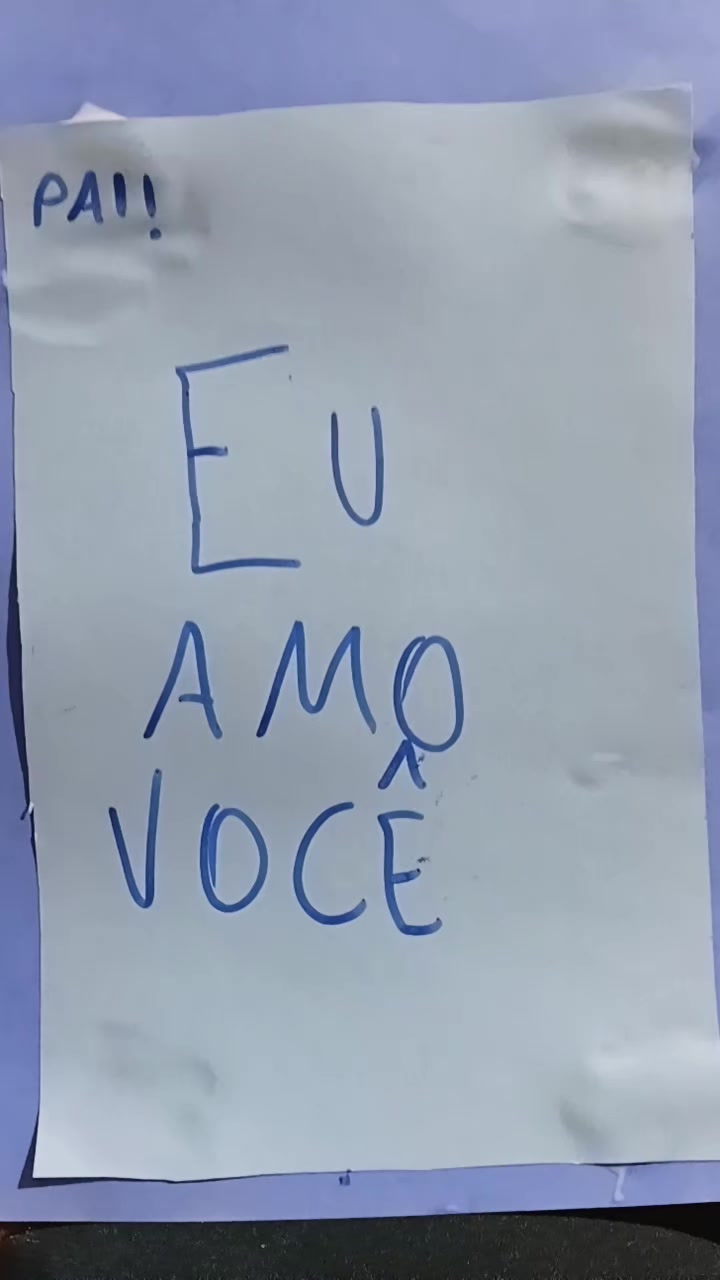 PAI!
EU
AMO
VOCÊ